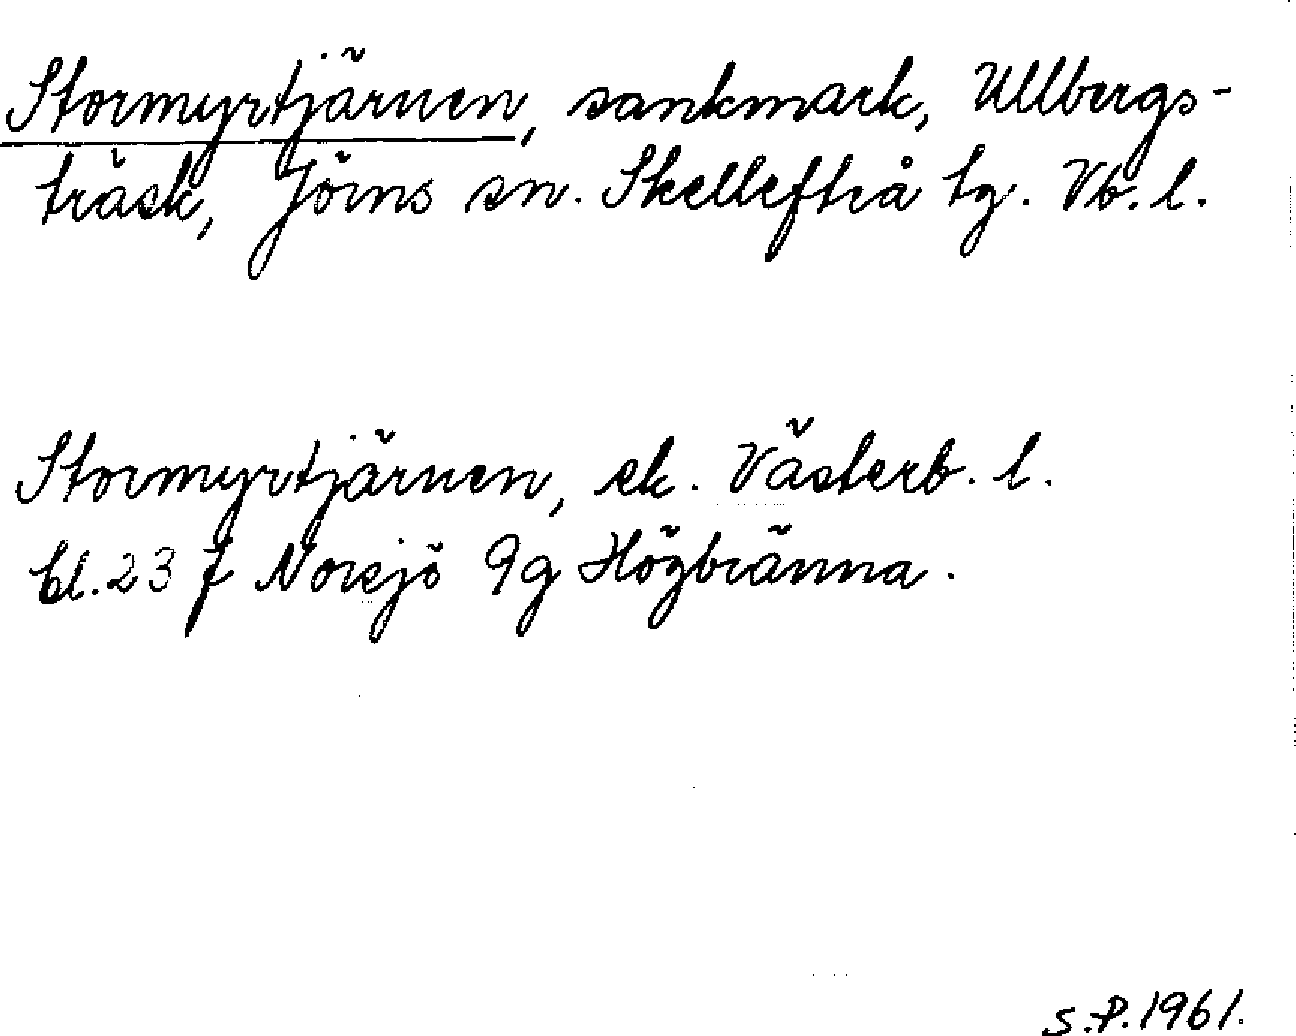 Stormyrtjärnen, sankmark, Ullbergs-
träsk, Jörns sn. Skellefteå tg. Vb. l.
Stormyrtjärnen, ek. Västerb. l.
bl. 23 J Norsjö 9g Högbränna.
S.P. 1961.